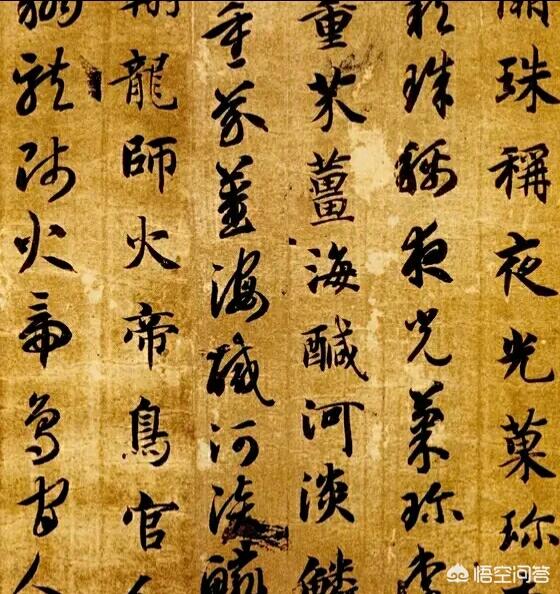 珠稱夜光菓珍
珠稱夜光菓珍李
重芥薑海醎河淡鱗
重芥薑海醎河淡鱗
翔龍師火帝鳥官人
翔龍師火帝鳥官人
悟空问答